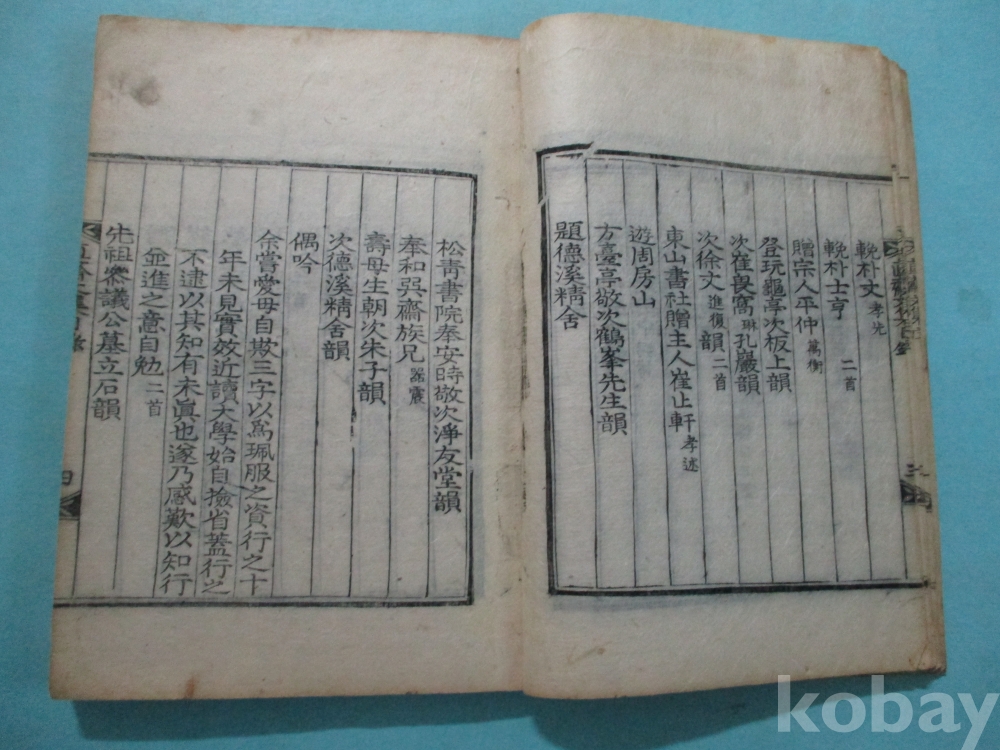 輓朴丈 孝先
輓朴士亨 二首
贈宗人平仲 萬衡
登玩龜亭次板上韻
次崔畏窩 琳 孔巖韻
次徐丈 進復 韻 二首
東山書社贈主人崔止軒 孝述
遊周房山
方臺亭敬次鶴峯先生韻
題德溪精舍
松靑書院奉安時敬次淨友堂韻
奉和吳齋族兄 器震
壽母生朝次朱子韻
次德溪精舍韻
偶吟
余嘗愛毋自欺三字以爲珮服之資行之十
年未見實效近讀大學始自撿省蓋行之
不逮以其知有未眞也遂乃感歎以知行
並進之意自勉 二首
先祖叅議公墓立石韻
四
kobay